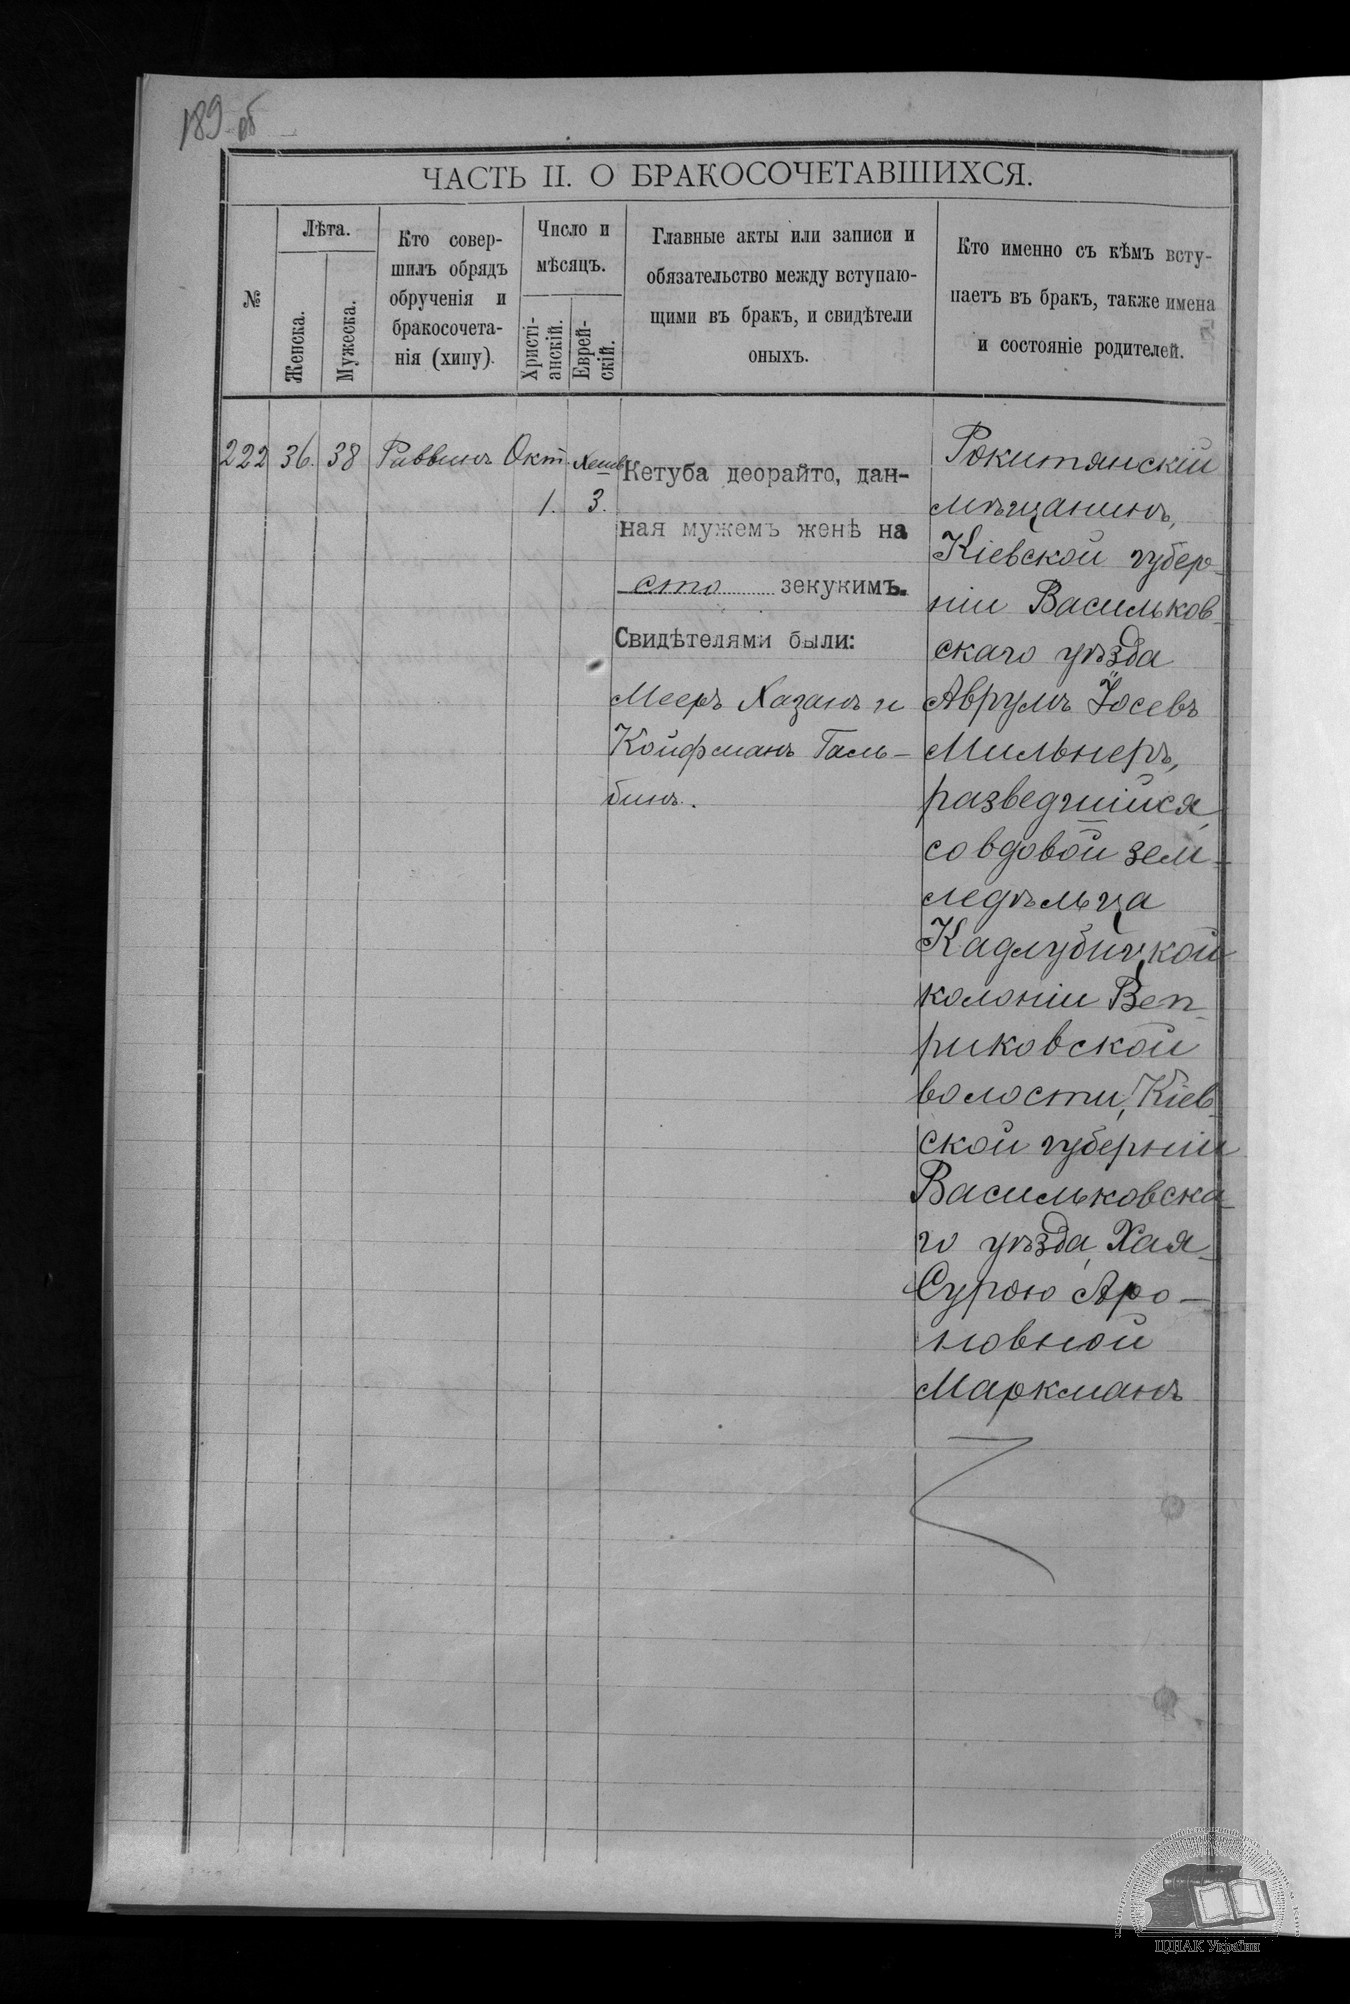 189 об
ЧАСТЬ II. О БРАКОСОЧЕТАВШИХСЯ.
№
Лѣта.
Женска.
Мужеска.
Кто совер-
шилъ обрядъ
обрученія и
бракосочета-
нія (хипу).
Число и
мѣсяцъ.
Христі-
анскій.
Еврей-
скій.
Главные акты или записи и
обязательство между вступаю-
щими въ бракъ, и свидѣтели
оныхъ.
Кто именно съ кѣмъ всту-
паетъ въ бракъ, также имена
и состояніе родителей.
222 36. 38 Раввинъ Окт. Хешв
1. 3.
Кетуба деорайто, дан-
ная мужемъ женѣ на
сто зекукимъ.
Свидѣтелями были:
Мееръ Хазанъ и
Койфманъ Галь-
бинъ.
Рокитянскій
мѣщанинъ,
Кіевской губер-
ніи Васильков-
скаго уѣзда
Аврумъ Іосевъ
Мильнеръ,
разведшійся,
со вдовой зем-
ледѣльца
Кадлубицкой
колоніи Веп-
риковской
волости, Кіев-
ской губерніи
Васильковска-
го уѣзда, Хая-
Сурою Аро-
новной
Маркманъ
ЦДІАК України